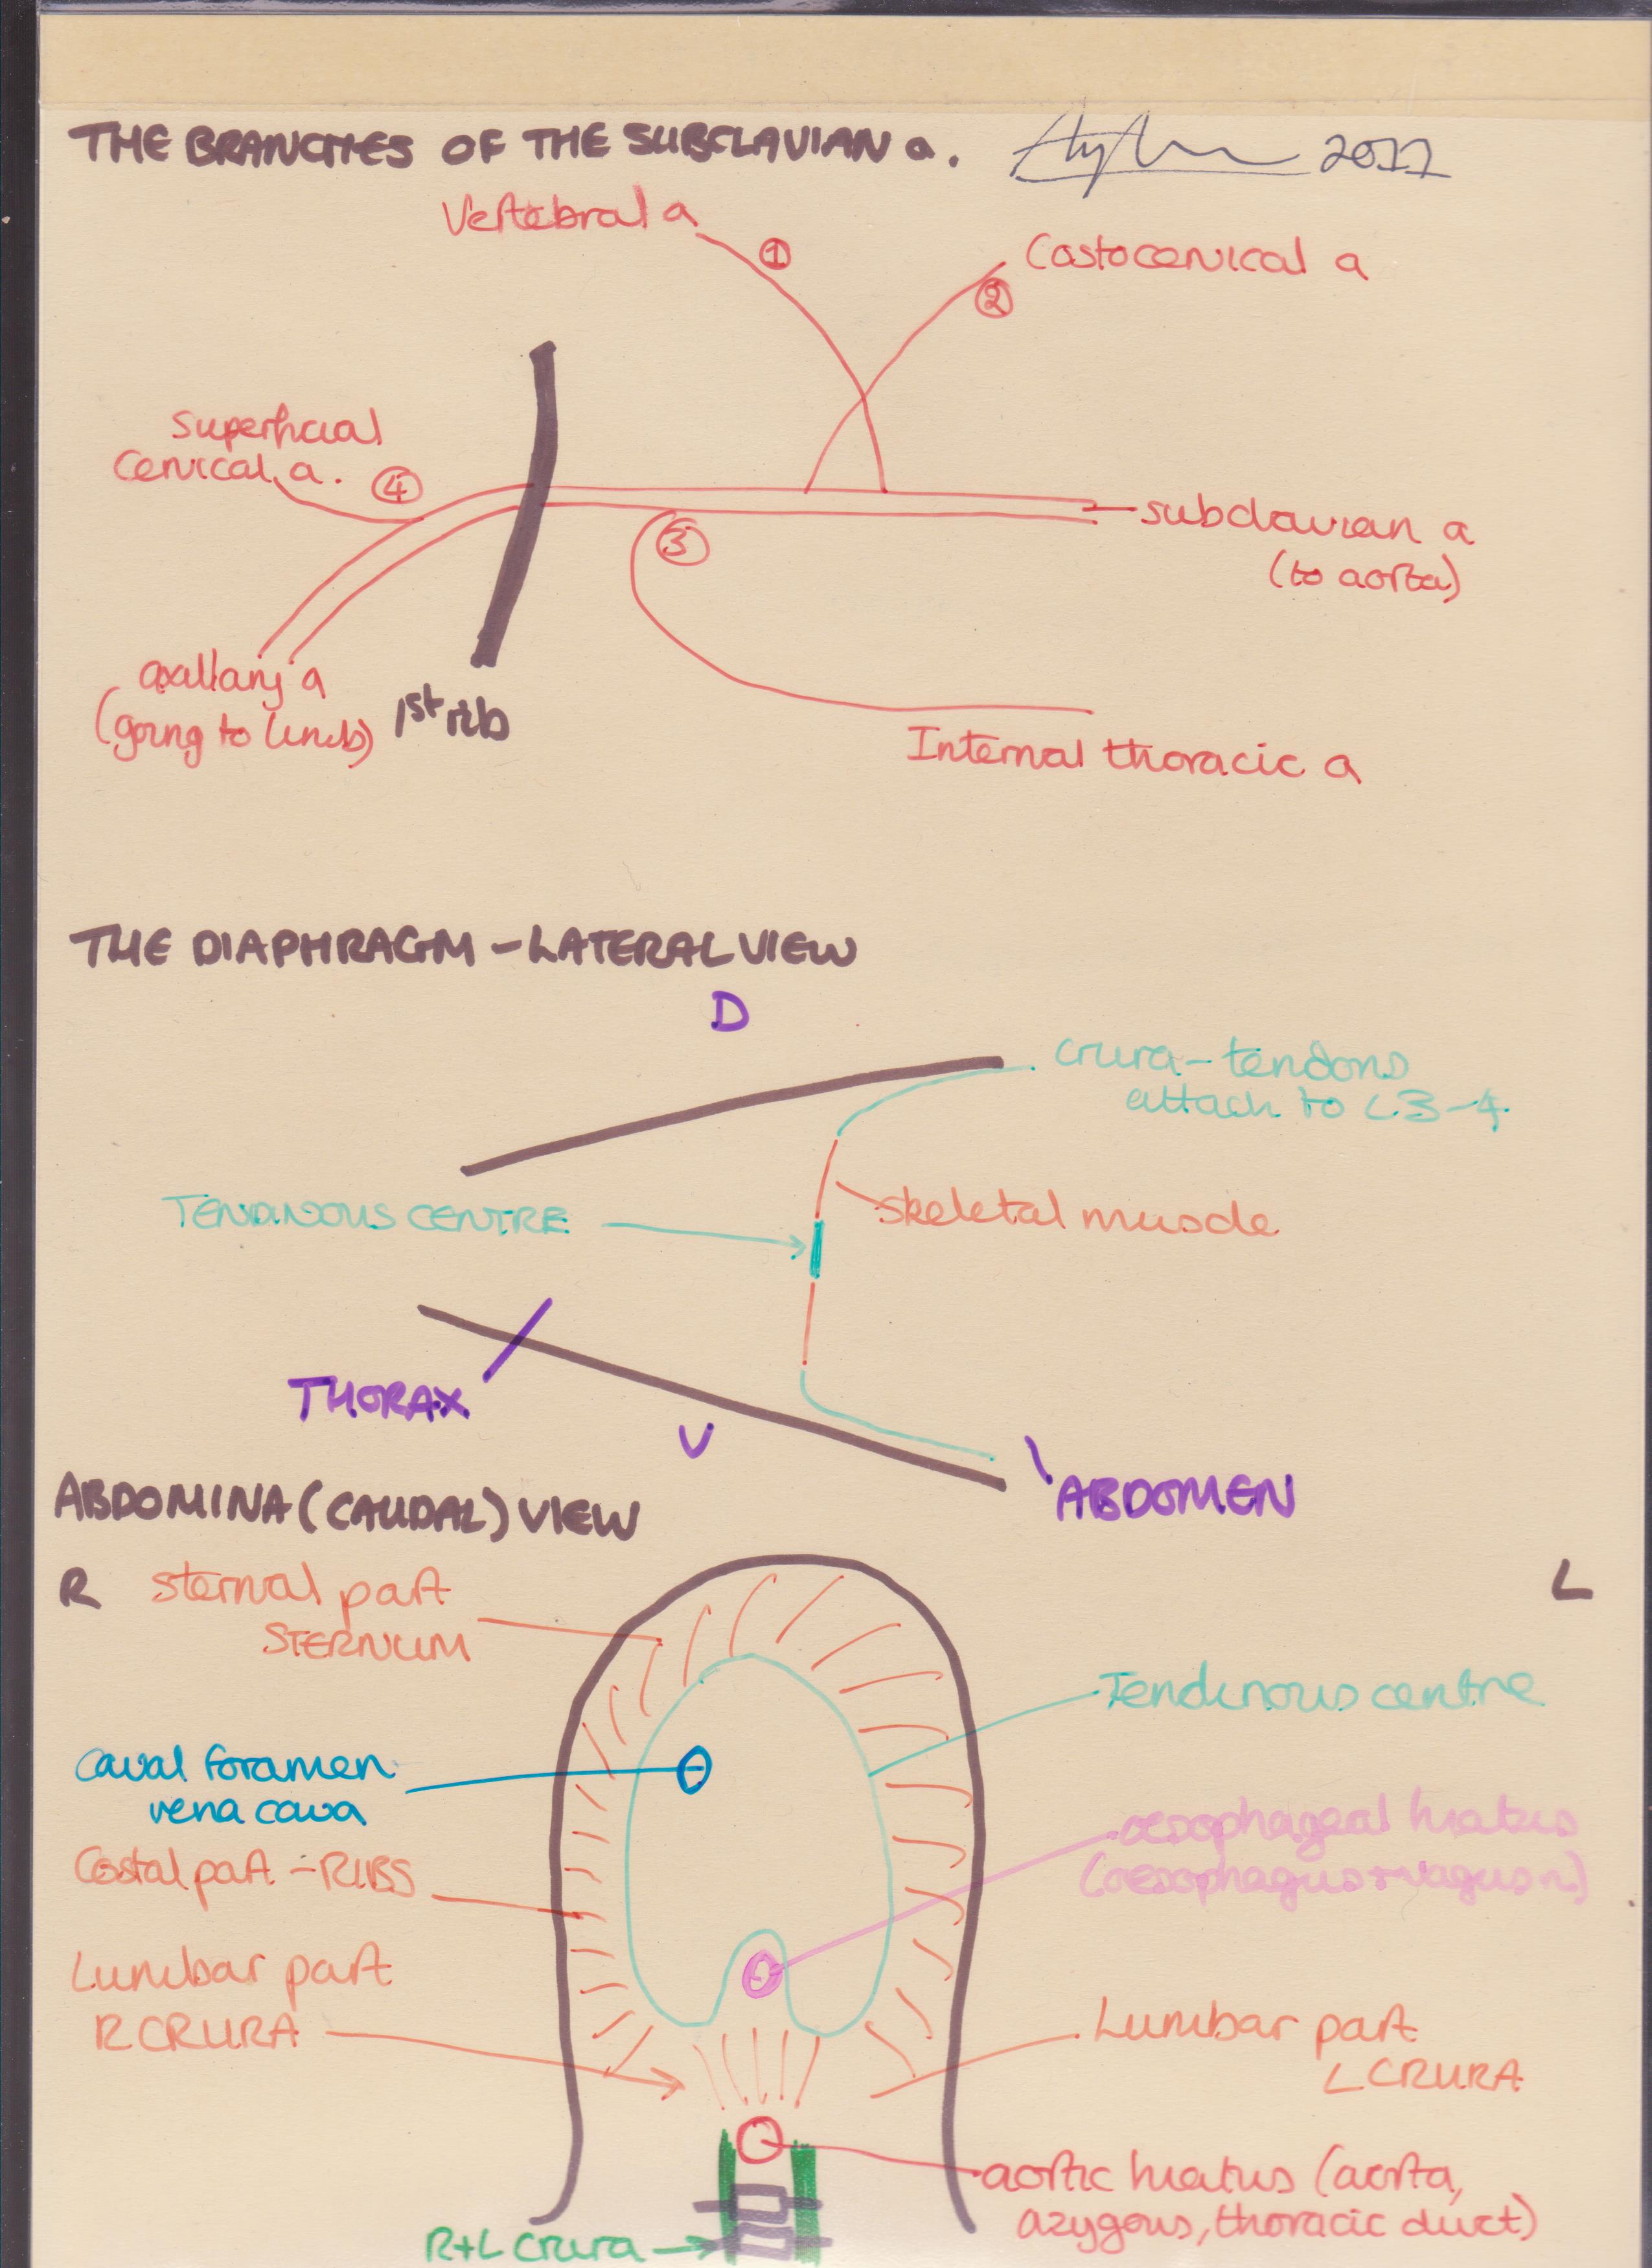 THE BRANCHES OF THE SUBCLAVIAN a.
2011
Vertebral a
①
Costocervical a
②
Superficial
Cervical a.
④
③
subclavian a
(to aorta)
axillary a
(going to limb)
1st rib
Internal thoracic a
THE DIAPHRAGM - LATERAL VIEW
D
crura - tendons
attach to L3-4.
TENDINOUS CENTRE
skeletal muscle
THORAX
V
ABDOMEN
ABDOMINA (CAUDAL) VIEW
R
L
sternal part
STERNUM
Tendinous centre
Caval foramen
vena cava
oesophageal hiatus
(oesophagus + vagus n.)
Costal part - RIBS
Lumbar part
R CRURA
Lumbar part
L CRURA
aortic hiatus (aorta,
azygous, thoracic duct)
R+L crura